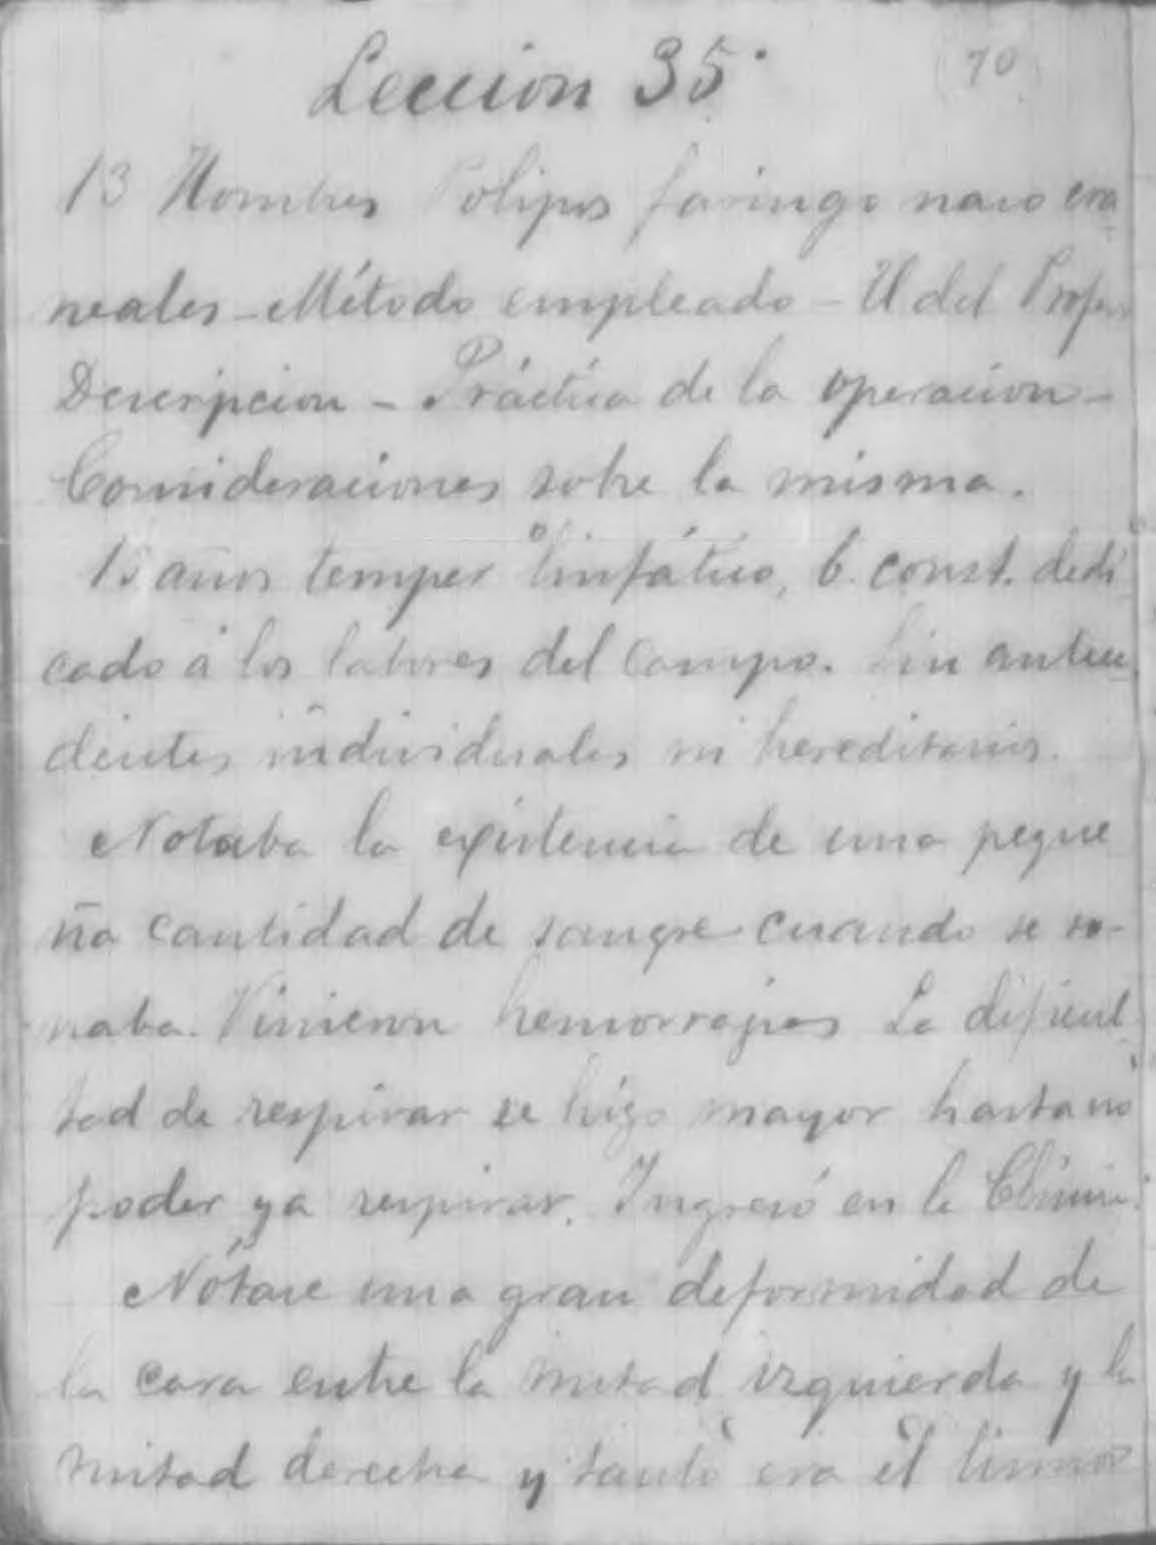 Leccion 35.
70
13 Hombres Polipos faringo naso cra
neales - Método empleado - El del Profesor
Descripcion - Práctica de la operacion -
Consideraciones sobre la misma.
15 años temper linfático, b. const. dedi
cado á los labores del campo. Sin antece
dentes individuales ni hereditarios.
Notaba la existencia de una peque
ña cantidad de sangre cuando se so-
naba. Vinieron hemorragias La dificul
tad de respirar se hizo mayor hasta no
poder ya respirar. Ingresó en la Clínica.
Nótase una gran deformidad de
la cara entre la mitad izquierda y la
mitad derecha y tanto era el tumor